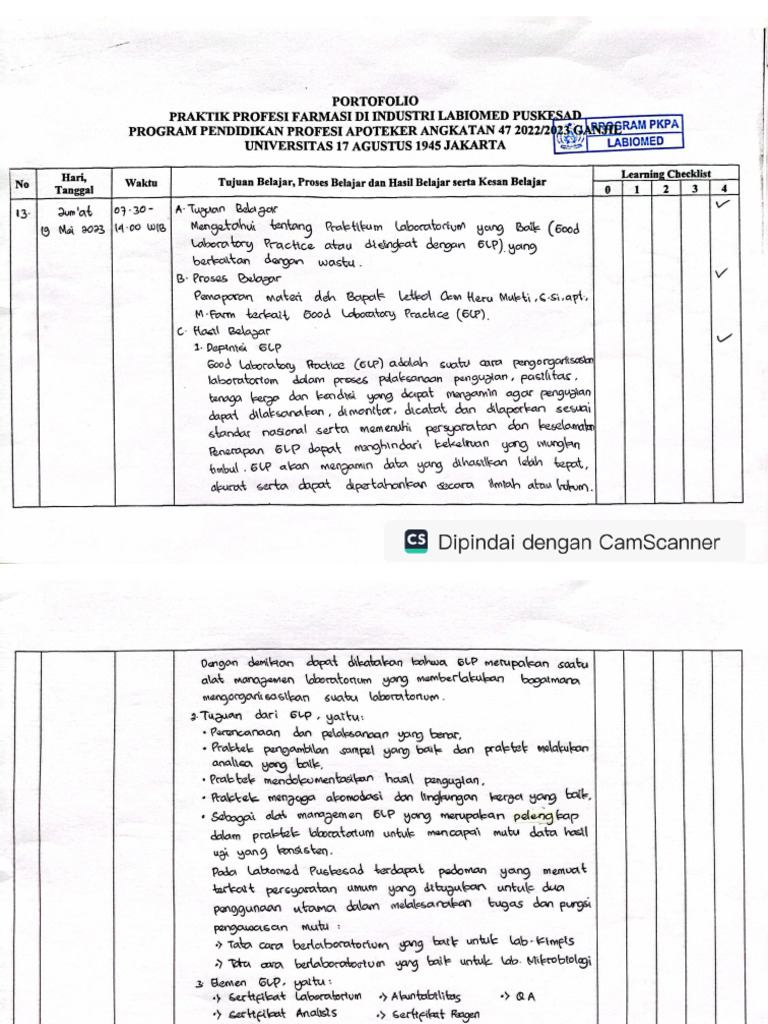 PORTOFOLIO
PRAKTIK PROFESI FARMASI DI INDUSTRI LABIOMED PUSKESAD
PROGRAM PENDIDIKAN PROFESI APOTEKER ANGKATAN 47 2022/2023 GANJIL
UNIVERSITAS 17 AGUSTUS 1945 JAKARTA
PROGRAM PKPA
LABIOMED
No
Hari, Tanggal
Waktu
Tujuan Belajar, Proses Belajar dan Hasil Belajar serta Kesan Belajar
Learning Checklist
0 1 2 3 4
13. Jum'at 07.30 -
19 Mei 2023 14.00 WIB
A. Tujuan Belajar
Mengetahui tentang Praktikum Laboratorium yang Baik (Good
Laboratory Practice atau disingkat dengan GLP) yang
berkaitan dengan wastu.
B. Proses Belajar
Pemaparan materi oleh Bapak Letkol Ckm Heru Mukti, S.Si, apt,
M.Farm terkait Good Laboratory Practice (GLP).
C. Hasil Belajar
1. Depinisi GLP
Good Laboratory Practice (GLP) adalah suatu cara pengorganisasian
laboratorium dalam proses pelaksanaan pengujian, pasilitas,
tenaga kerja dan kondisi yang dapat menjamin agar pengujian
dapat dilaksanakan, dimonitor, dicatat dan dilaporkan sesuai
standar nasional serta memenuhi persyaratan dan keselamatan
Penerapan GLP dapat menghindari kekeliruan yang mungkin
timbul. GLP akan menjamin data yang dihasilkan lebih tepat,
akurat serta dapat dipertahankan secara ilmiah atau hukum.
CS Dipindai dengan CamScanner
Dengan demikian dapat dikatakan bahwa GLP merupakan suatu
alat managemen laboratorium yang memberlakukan bagaimana
mengorganisasikan suatu laboratorium.
2. Tujuan dari GLP, yaitu:
• Perencanaan dan pelaksanaan yang benar,
• Praktek pengambilan sampel yang baik dan praktek melakukan
analisa yang baik,
• Praktek mendokumentasikan hasil pengujian,
• Praktek menjaga akomodasi dan lingkungan kerja yang baik,
• Sebagai alat managemen GLP yang merupakan pelengkap
dalam praktek laboratorium untuk mencapai mutu data hasil
uji yang konsisten.
Pada Labiomed Puskesad terdapat pedoman yang memuat
terkait persyaratan umum yang ditujukan untuk dua
penggunaan utama dalam melaksanakan tugas dan pungsi
pengawasan mutu :
-> Tata cara berlaboratorium yang baik untuk lab. Kimpis
-> Tata cara berlaboratorium yang baik untuk lab. Mikrobiologi
3. Elemen GLP, yaitu:
-> Sertifikat Laboratorium -> Akuntabilitas -> QA
-> Sertifikat Analisis -> Sertifikat Reagen